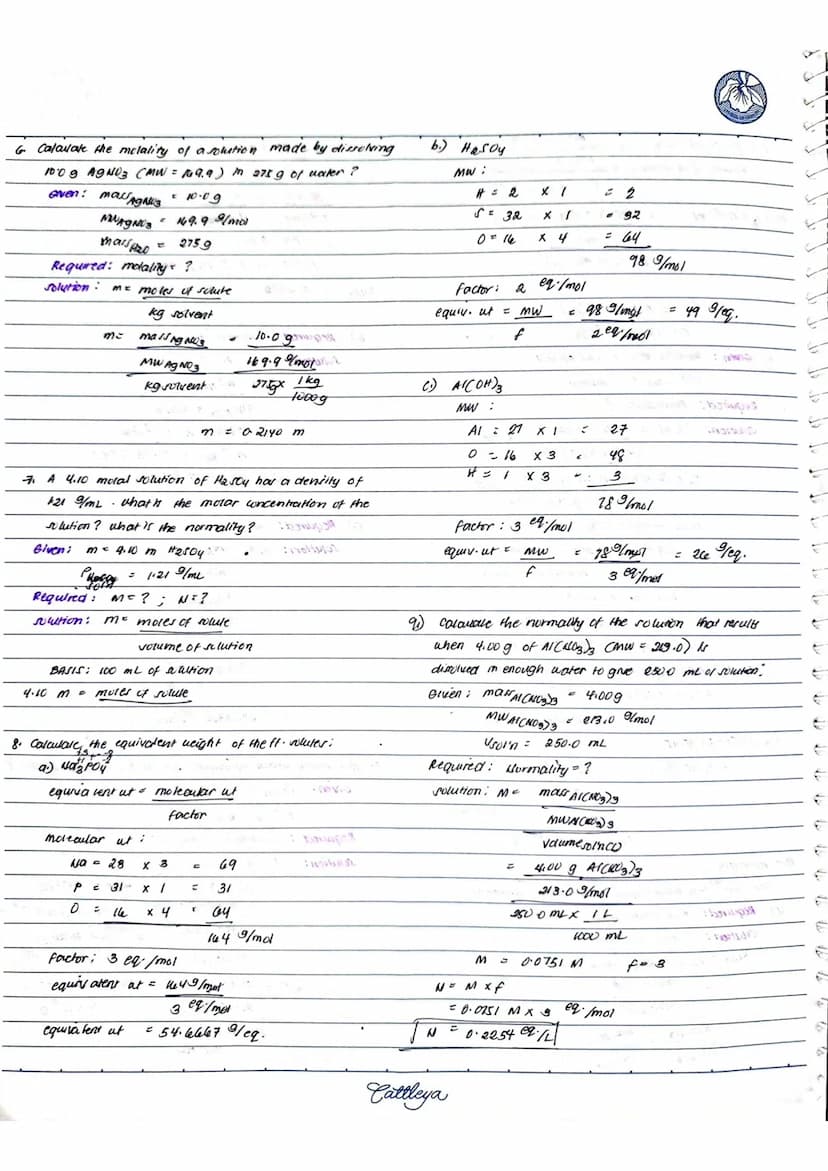 6 Calculate the molality of a solution made by dissolving
10.0 g AgNO3 (MW = 169.9) in 275 g of water?
Given: mass AgNO3 = 10.0 g
MW AgNO3 = 169.9 g/mol
mass H2O = 275 g
Required: molality = ?
solution: m = moles of solute
kg solvent
m = mass AgNO3 = 10.0 g
MW AgNO3 169.9 g/mol
kg solvent: 275g x 1 kg
1000g
m = 0.2140 m
7. A 4.10 molal solution of H2SO4 has a density of
1.21 g/mL. what is the molar concentration of the
solution? what is the normality?
Given: m = 4.10 m H2SO4
ρ soln = 1.21 g/mL
Required: M = ? ; N = ?
solution: m = moles of solute
volume of solution
BASIS: 100 mL of solution
4.10 m = moles of solute
8. Calculate the equivalent weight of the ff. solutes:
a.) Na3PO4
equivalent wt = molecular wt
factor
molecular wt:
Na = 23 x 3 = 69
P = 31 x 1 = 31
O = 16 x 4 = 64
164 g/mol
factor: 3 eq./mol
equivalent wt = 164 g/mol
3 eq/mol
equivalent wt = 54.6667 g/eq.
b.) H2SO4
MW:
H = 2 x 1 = 2
S = 32 x 1 = 32
O = 16 x 4 = 64
98 g/mol
factor: 2 eq./mol
equiv. wt = MW = 98 g/mol = 49 g/eq.
f 2 eq/mol
c.) Al(OH)3
MW:
Al = 27 x 1 = 27
O = 16 x 3 = 48
H = 1 x 3 = 3
78 g/mol
factor: 3 eq/mol
equiv. wt = MW = 78 g/mol = 26 g/eq.
f 3 eq/mol
9.) Calculate the normality of the solution that results
when 4.00 g of Al(NO3)3 (MW = 213.0) is
dissolved in enough water to give 250.0 mL of solution.
Given: mass Al(NO3)3 = 4.00 g
MW Al(NO3)3 = 213.0 g/mol
Vsol'n = 250.0 mL
Required: Normality = ?
solution: M = mass Al(NO3)3
MW Al(NO3)3
Volume sol'n (L)
= 4.00 g Al(NO3)3
213.0 g/mol
250.0 mL x 1 L
1000 mL
M = 0.0751 M f = 3
N = M x f
= 0.0751 M x 3 eq./mol
N = 0.2254 eq./L
Cattleya